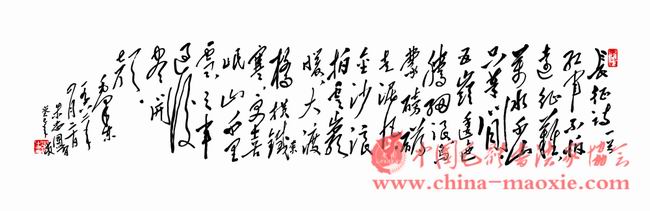 长征诗一首
红军不怕
远征难
万水千山
只等闲
五岭逶迤
腾细浪乌
蒙磅礴
走泥丸
金沙浪
拍云崖
暖大渡
桥横铁索
寒更喜
岷山千里
雪三军
过后
尽开
颜
毛泽东
一九六二年
四月二十日
中国毛体书法家协会
www.china-maoxie.com